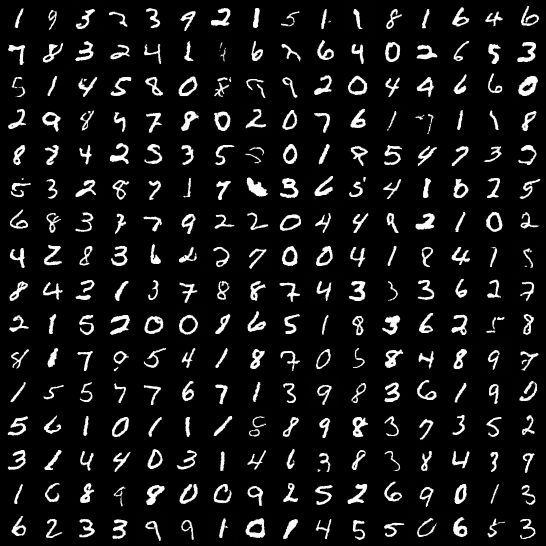 1 9 3 2 3 9 2 1 5 1 1 8 1 6 4 6
7 8 3 2 4 1 6 2 6 4 0 2 6 5 3
5 1 4 5 8 0 8 9 9 2 0 4 4 6 6 0
2 9 8 4 7 8 0 2 0 7 6 1 1 1 8
8 8 4 2 5 3 5 5 0 1 8 5 4 7 3 2
5 3 2 8 7 1 7 3 6 5 4 1 6 2 5
6 8 3 7 7 9 2 2 0 4 4 9 2 1 0 2
4 2 8 3 6 2 2 7 0 0 4 1 8 4 1 5
8 4 3 1 3 7 8 8 7 4 3 3 3 6 2 7
2 1 5 2 0 0 9 6 5 1 8 3 6 2 5 8
8 1 7 9 5 4 1 8 7 0 5 8 4 8 9 7
1 5 5 7 7 6 7 1 3 9 8 3 6 1 9 0
5 6 1 0 1 1 1 8 8 9 8 3 7 3 5 2
3 1 4 4 0 3 1 4 6 3 8 3 8 4 3 9
1 6 8 9 8 0 0 9 2 5 2 6 9 0 1 3
6 2 3 3 9 9 1 0 1 4 5 5 0 6 5 3